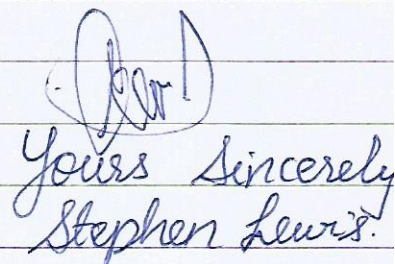 Yours Sincerely
Stephen Lewis.